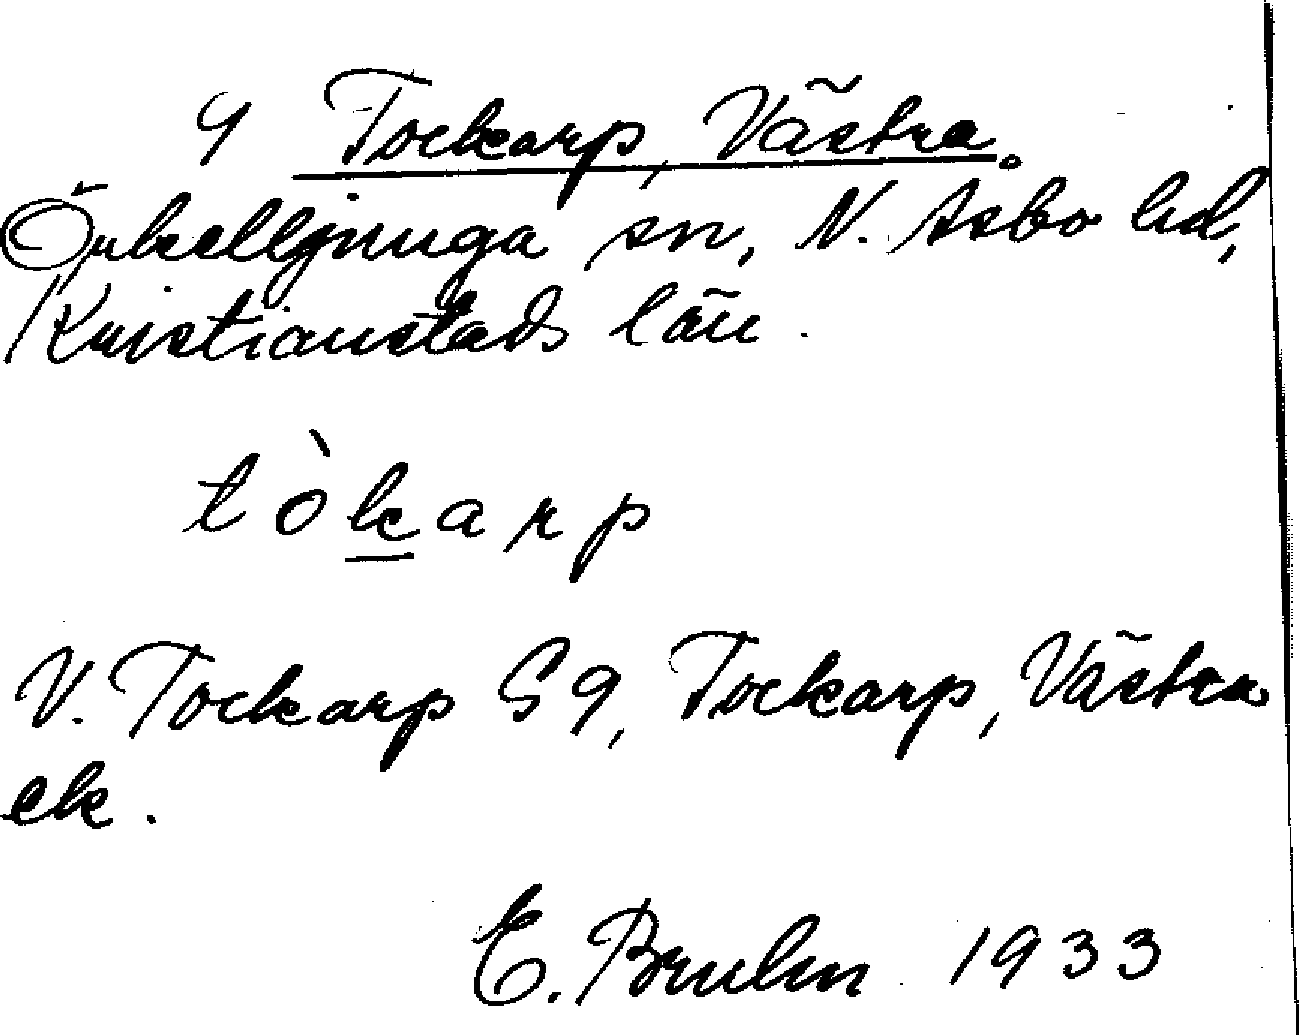 4 Tockarp, Västra
Örkelljunga sn, N. Åsbo hd,
Kristianstads län.
tòkarp
V. Tockarp S9, Tockarp, Västra
ek.
E. Bruhn 1933